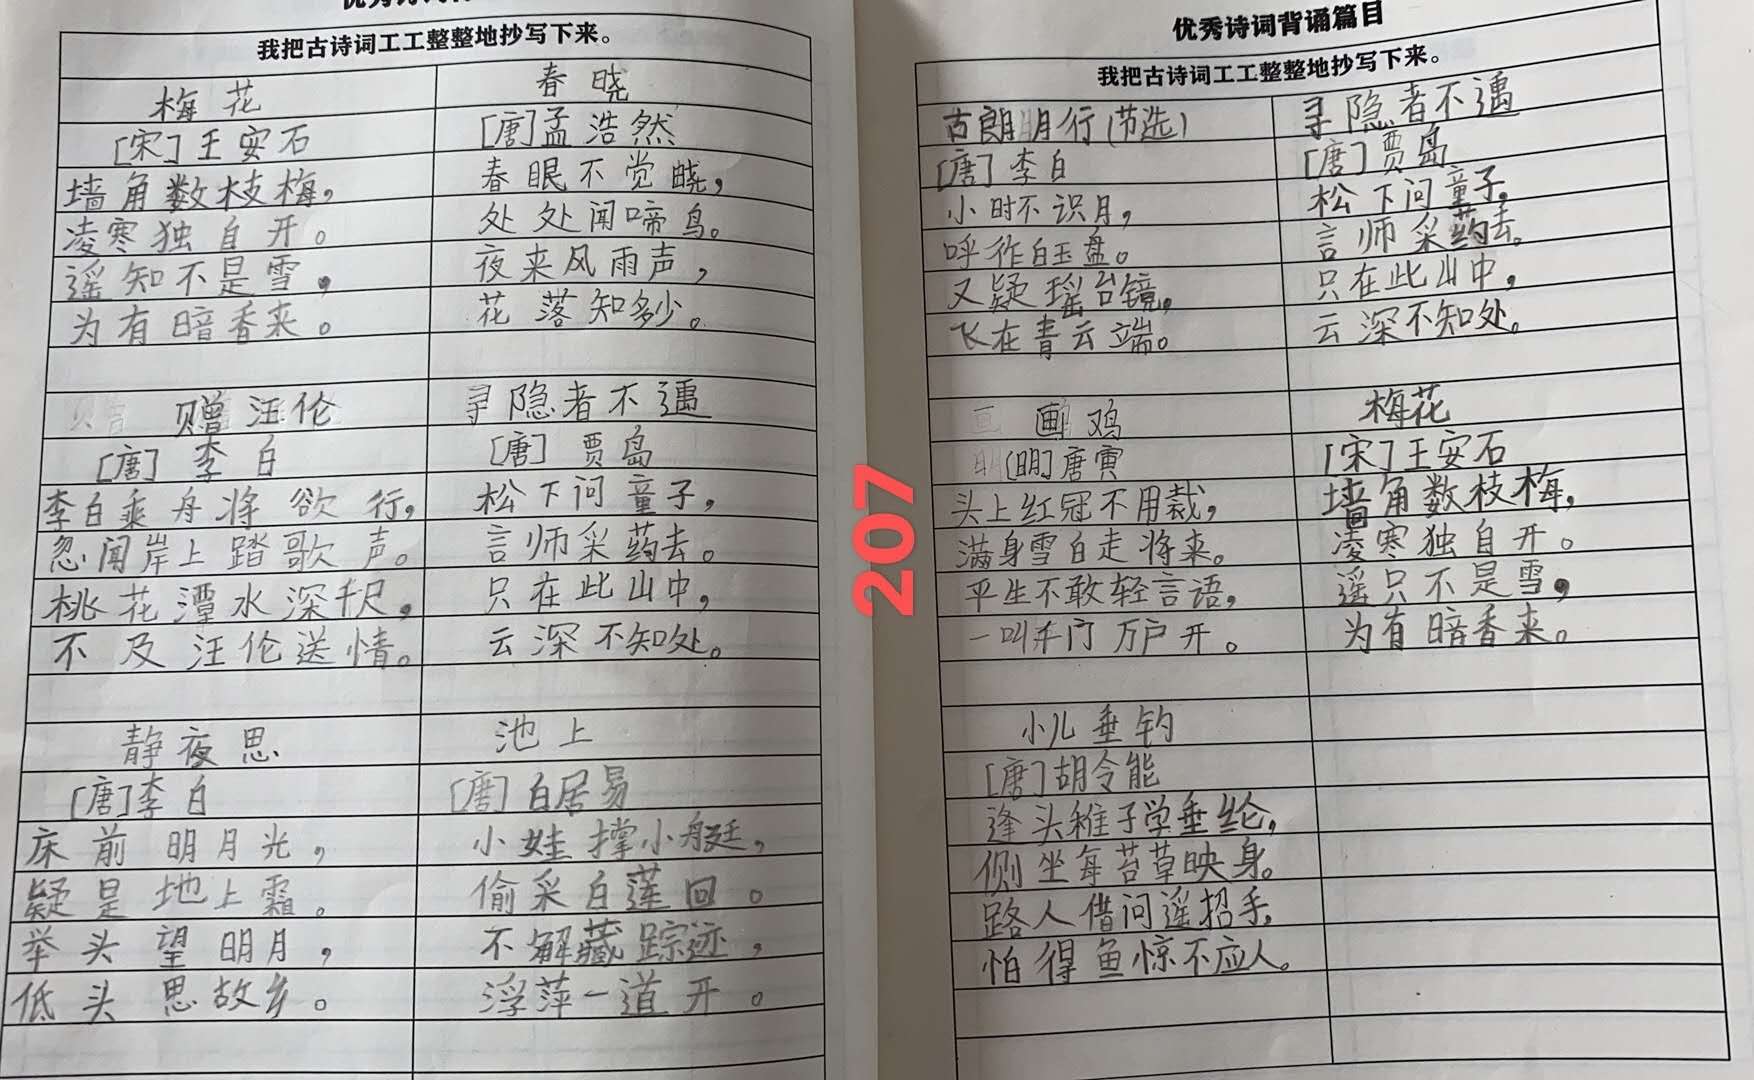 我把古诗词工工整整地抄写下来。
梅花
[宋]王安石
墙角数枝梅，
凌寒独自开。
遥知不是雪，
为有暗香来。
赠汪伦
[唐]李白
李白乘舟将欲行，
忽闻岸上踏歌声。
桃花潭水深千尺，
不及汪伦送情。
静夜思
[唐]李白
床前明月光，
疑是地上霜。
举头望明月，
低头思故乡。
春晓
[唐]孟浩然
春眠不觉晓，
处处闻啼鸟。
夜来风雨声，
花落知多少。
寻隐者不遇
[唐]贾岛
松下问童子，
言师采药去。
只在此山中，
云深不知处。
池上
[唐]白居易
小娃撑小艇，
偷采白莲回。
不解藏踪迹，
浮萍一道开。
207
优秀诗词背诵篇目
我把古诗词工工整整地抄写下来。
古朗明月行(节选)
[唐]李白
小时不识月，
呼作白玉盘。
又疑瑶台镜，
飞在青云端。
画鸡
[明]唐寅
头上红冠不用裁，
满身雪白走将来。
平生不敢轻言语，
一叫千门万户开。
小儿垂钓
[唐]胡令能
蓬头稚子学垂纶，
侧坐莓苔草映身。
路人借问遥招手，
怕得鱼惊不应人。
寻隐者不遇
[唐]贾岛
松下问童子，
言师采药去。
只在此山中，
云深不知处。
梅花
[宋]王安石
墙角数枝梅，
凌寒独自开。
遥只不是雪，
为有暗香来。